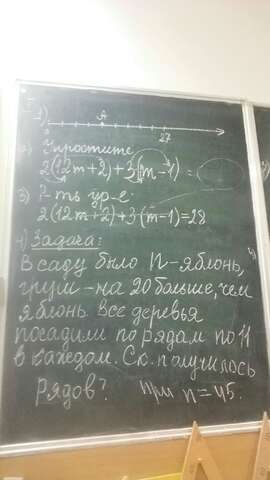 1)
A
0 27
2) Упростите
2(12m+2)+3(m-1)=
3) Р-ть ур-е:
2(12m+2)+3·(m-1)=28
4) Задача:
В саду было n-яблонь,
груш-на 20 больше, чем
яблонь все деревья
посадили по рядам по 11
в каждом. Ск. получилось
Рядов? При n=45.